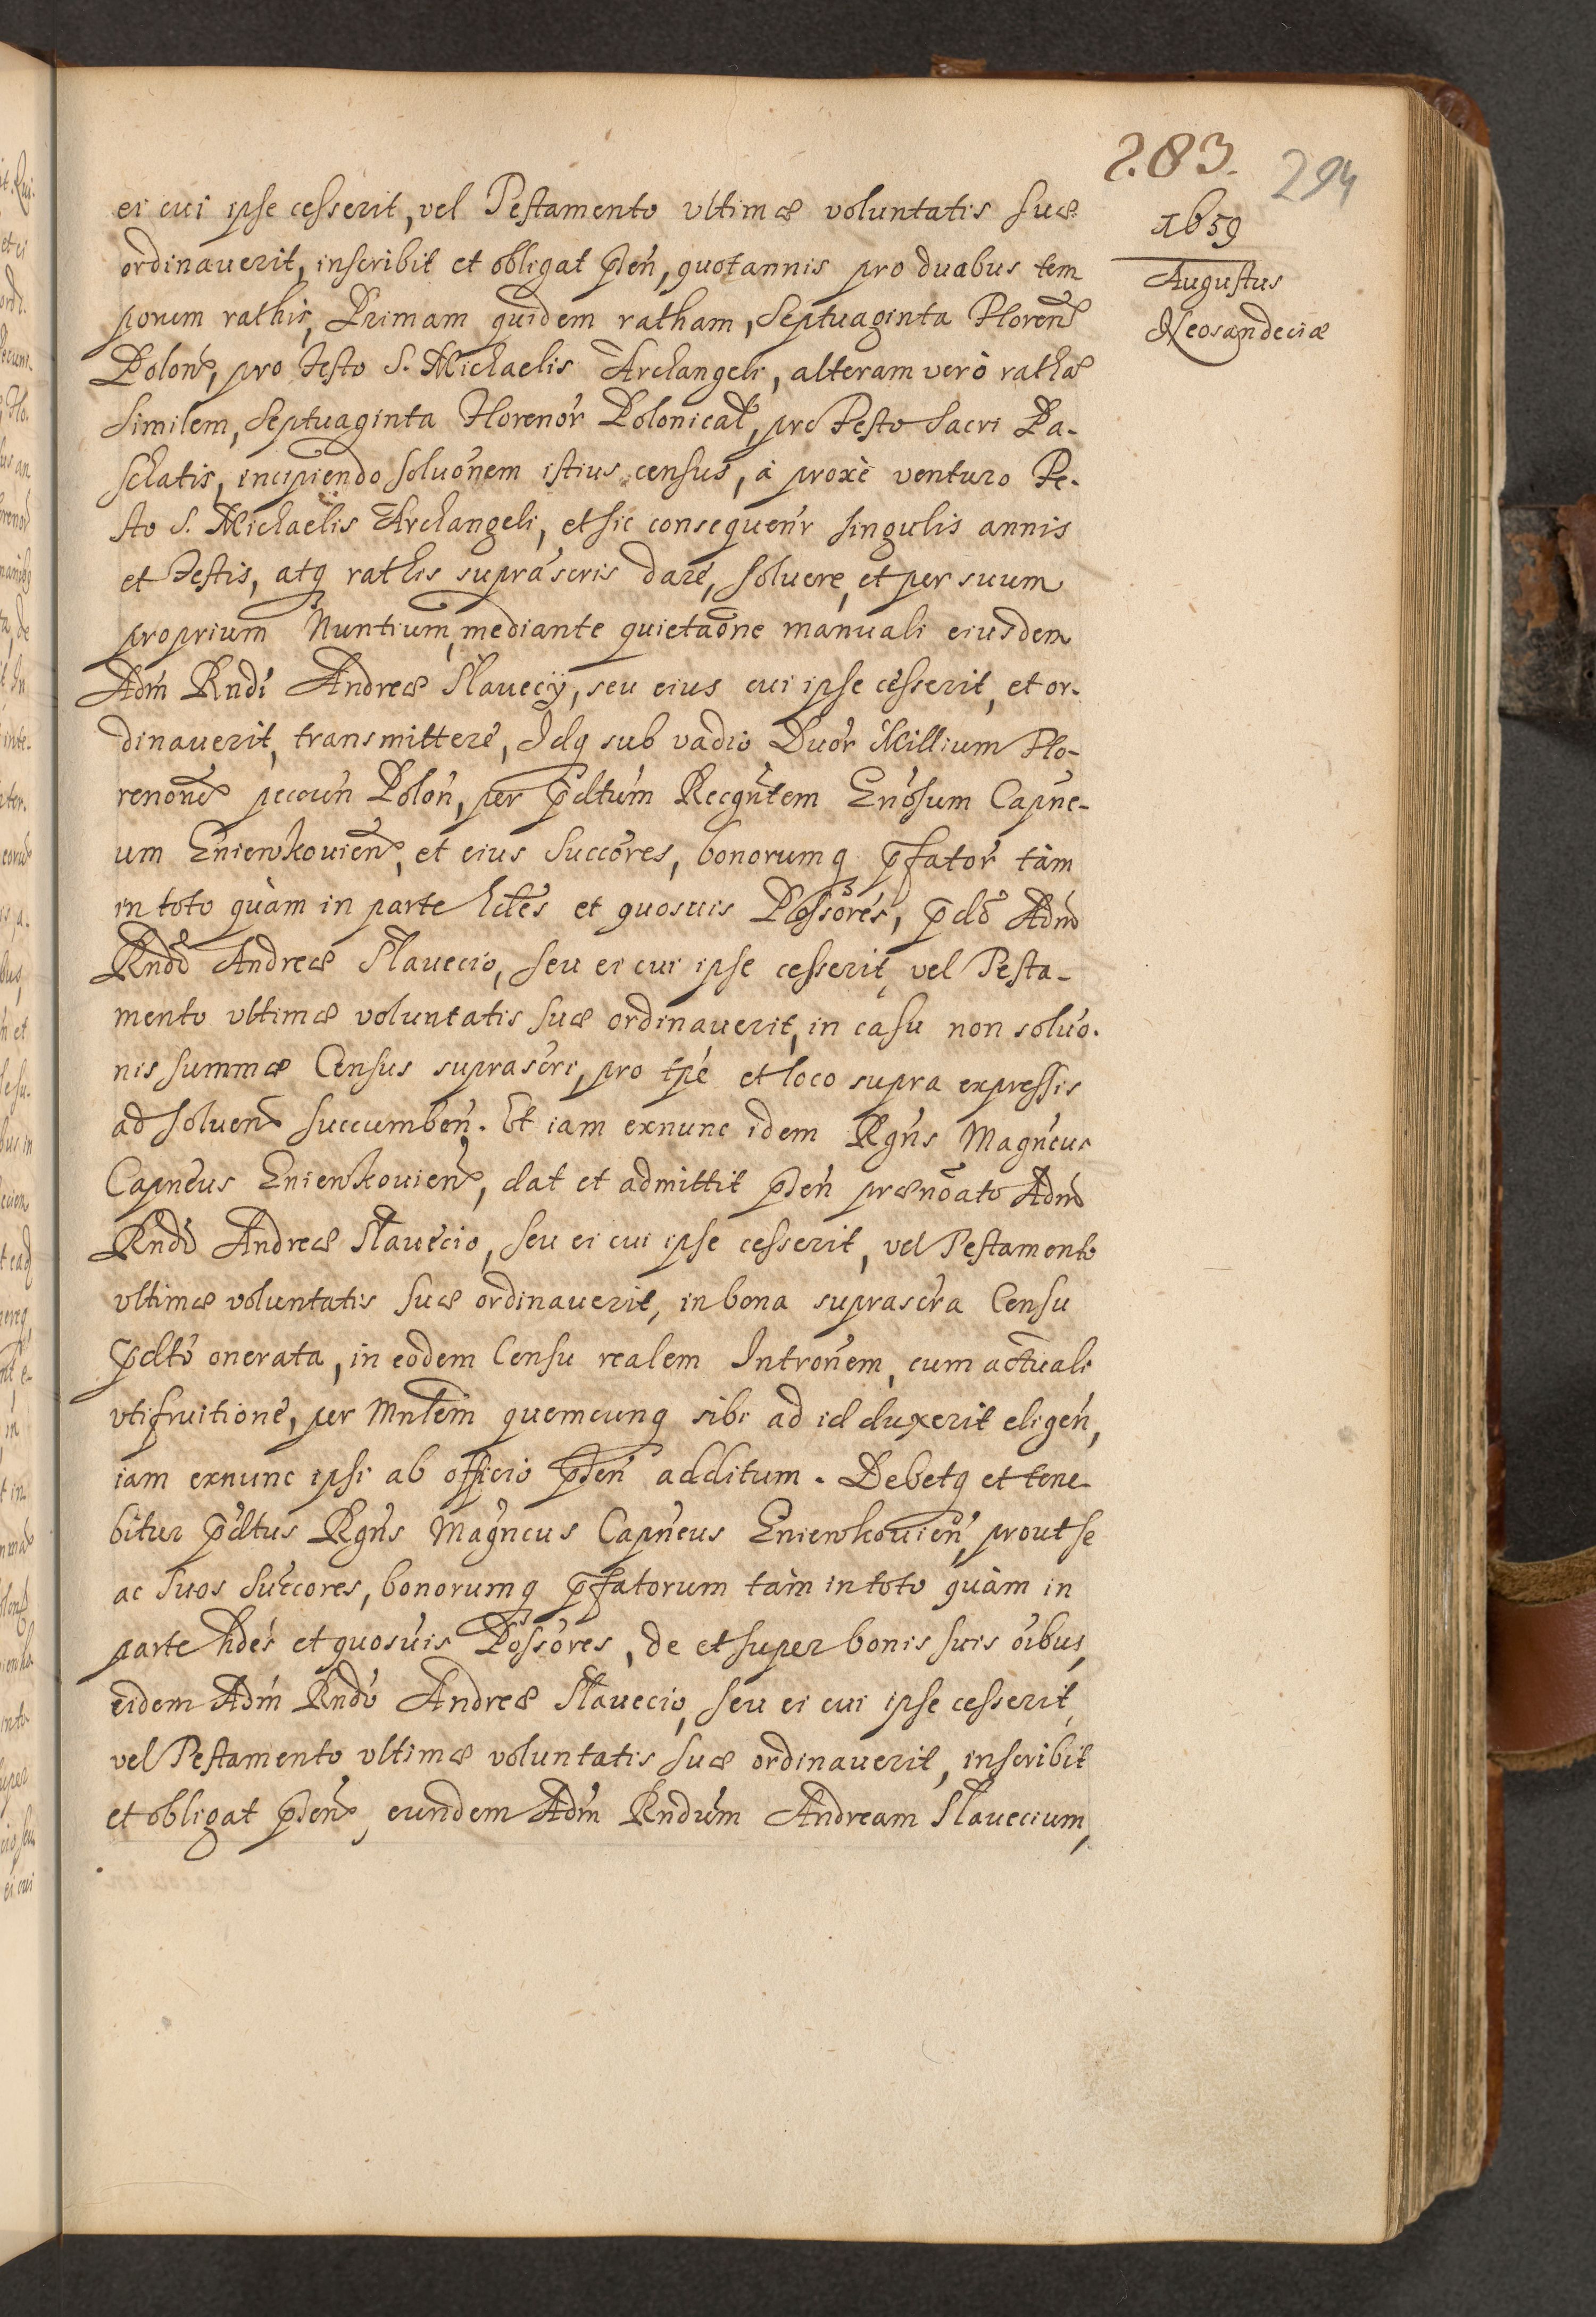 283. 294
1659
Augustus
Neosandeciæ
ei cui ipse cesserit, vel Testamento vltimæ voluntatis suæ
ordinauerit, inscribit et obligat pñtiũ, quotannis pro duabus tem
porum rathis, Primam quidem ratham, Septuaginta Floren̄
Polon̄, pro Festo S. Michaelis Archangeli, alteram verò rathā
similem, Septuaginta Florenor̃ Polonical̃, pro Festo Sacri Pa-
schatis, incipiendo soluõnem istius census, à proxè venturo Fe-
sto S. Michaelis Archangeli, et sic consequen̄r singulis annis
et Festis, atq rathis supra scris dare, soluere, et per suum
proprium Nuntium, mediante quietaõne manuali eiusdem
Adm̃ Rndi Andreæ Slauecij, seu eius cui ipse cesserit, et or-
dinauerit, transmittere, Idq sub vadio Duor̃ Millium Flo-
renon̄ pecun̄ Polon̄, per p̄dtum Recgn̄tem Gn̄osum Capne-
um Gniewkouien̄, et eius Succõres, bonorumq p̄fator̃ tàm
in toto quàm in parte hdes et quosuis Possõres, p̄do Adm̃
Rndo Andreæ Slauecio, seu ei cui ipse cesserit, vel Testa-
mento vltimæ voluntatis suæ ordinauerit, in casu non soluõ-
nis summæ Census suprascri, pro tpe et loco supra expressis
ad soluen̄ succumben̄. Et iam exnunc idem Rgn̄s Magn̄cus
Capneus Gniewkouien̄, dat et admittit p̄ñ prænõato Adm̃
Rndo Andreæ Slauecio, seu ei cui ipse cesserit, vel Testamento
vltimæ voluntatis suæ ordinauerit, in bona suprascra Censu
p̄dto onerata, in eodem Censu realem Intronem, cum actuali
vtifruitione, per Mnlem quemcunq sibi ad id duxerit eligen̄,
iam exnunc ipsi ab officio p̄ñ additum. Debetq et tene-
bitur p̄dtus Rgn̄s Magn̄cus Capneus Gniewkouien̄, prout se
ac suos Succores, bonorumq p̄fatorum tàm in toto quàm in
parte hdes et quosuis Possõres, de et super bonis suis oibus,
eidem Adm̃ Rndo Andreæ Slauecio, seu ei cui ipse cesserit,
vel Testamento vltimæ voluntatis suæ ordinauerit, inscribit
et obligat p̄ñ, eundem Adm̃ Rndum Andream Slauecium,